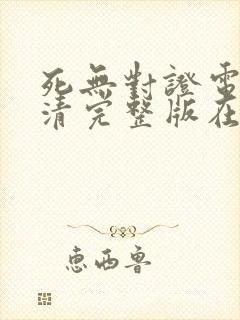 死無對證電
清完整版在
惠西魯